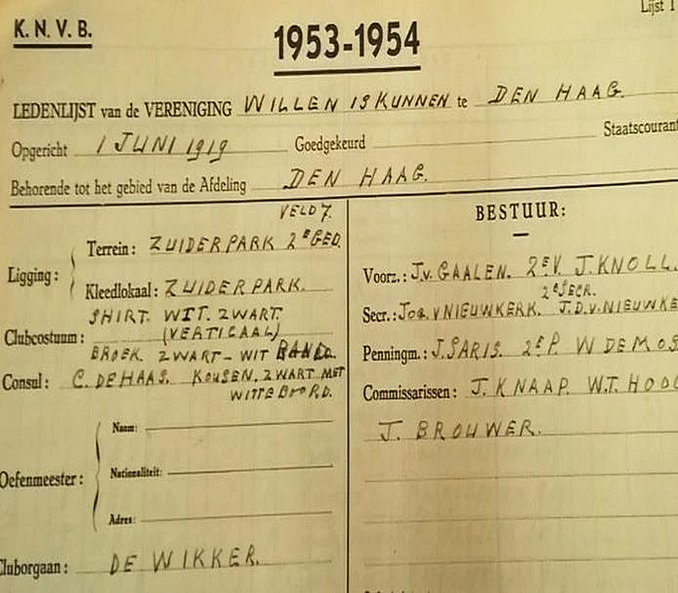 Lijst 1
K. N. V. B.
1953-1954
LEDENLIJST van de VERENIGING WILLEN IS KUNNEN te DEN HAAG.
Opgericht 1 JUNI 1919 Goedgekeurd Staatscourant
Behorende tot het gebied van de Afdeling DEN HAAG.
VELD 7.
Ligging: Terrein: ZUIDERPARK 2E GED.
Kleedlokaal: ZUIDERPARK.
SHIRT. WIT. ZWART.
Clubcostuum: (VERTICAAL)
BROEK. ZWART-WIT BAND.
Consul: C. DE HAAS. KOUSEN. ZWART MET
WITTE BOORD.
Naam:
Oefenmeester: Nationaliteit:
Adres:
Cluborgaan: DE WIKKER.
BESTUUR:
Voorz.: J.v. GAALEN. 2E V. J. KNOLL.
2E SECR.
Secr.: Jos. v NIEUWKERK. J.D. v. NIEUWKE
Penningm.: J. SARIS. 2E P. W DE MOS
Commissarissen: J. KNAAP. W.T. HOO
J. BROUWER.